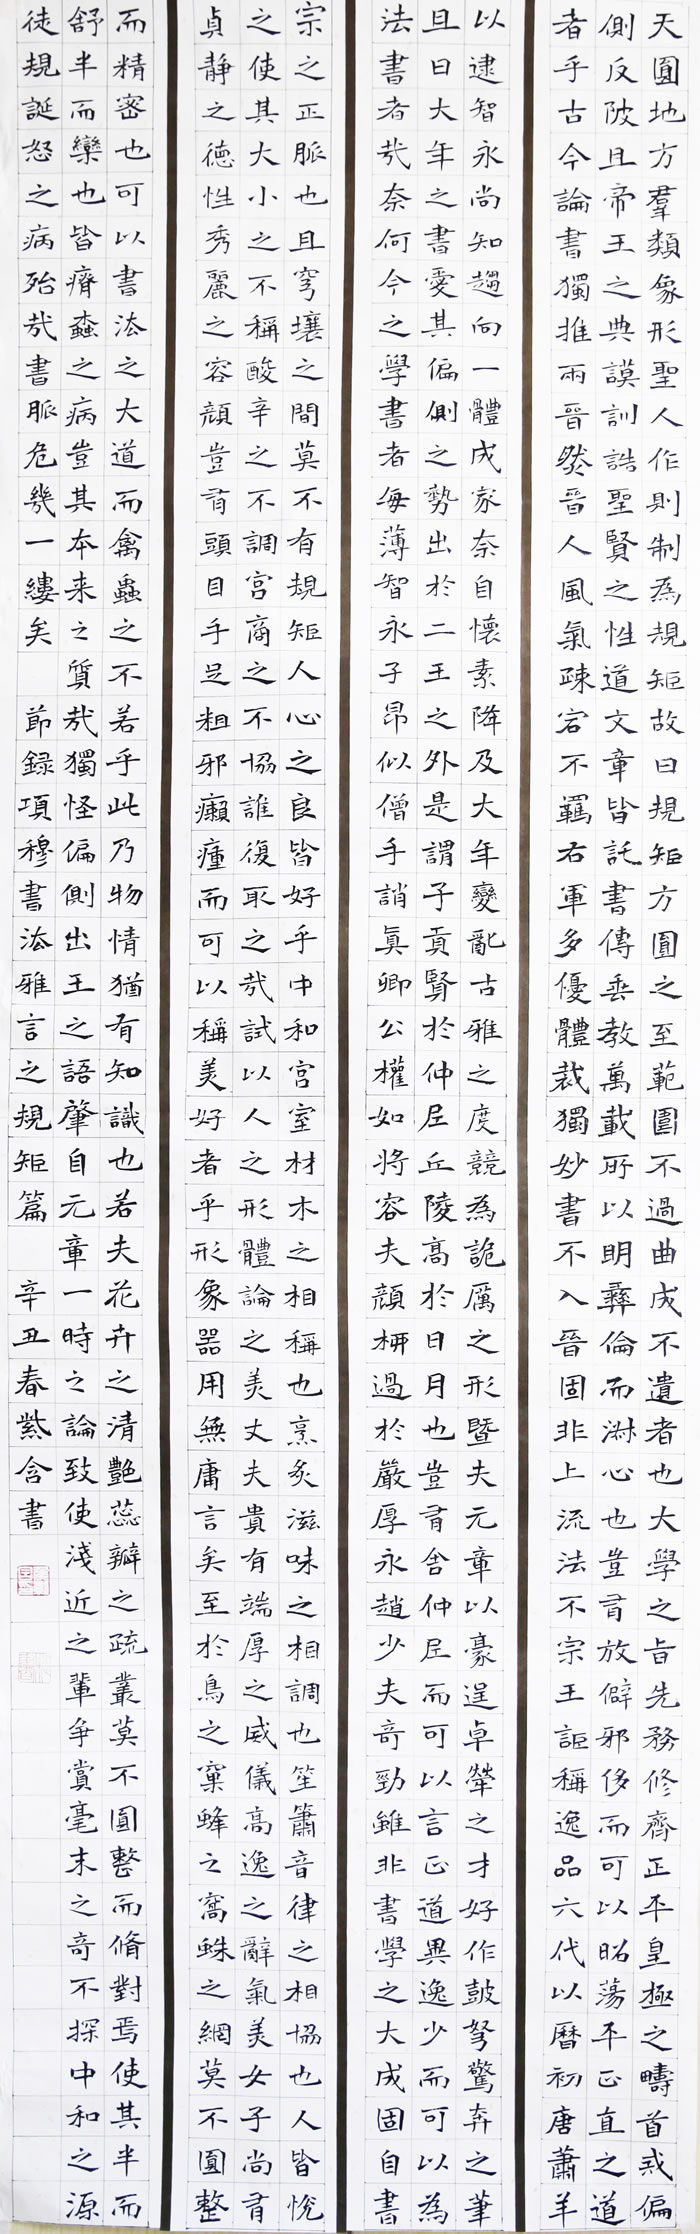 天圓地方羣類象形聖人作則制為規矩故曰規矩方圓之至範圍不過曲成不遺者也大學之旨先務修齊正平皇極之疇首戒偏
側反陂且帝王之典謨訓誥聖賢之性道文章皆託書傳垂教萬載所以明彝倫而淋心也豈有放僻邪侈而可以昭蕩平正直之道
者乎古今論書獨推兩晉然晉人風氣疎宕不羈右軍多優體裁獨妙書不入晉固非上流法不宗王詎稱逸品六代以曆初唐蕭羊
以逮智永尚知趨向一體成家奈自懷素降及大年變亂古雅之度競為詭厲之形暨夫元章以豪逞卓犖之才好作鼓弩驚奔之筆
且曰大年之書愛其偏側之勢出於二王之外是謂子貢賢於仲尼丘陵高於日月也豈有舍仲尼而可以言正道異逸少而可以為
法書者哉奈何今之學書者每薄智永子昂似僧手誚真卿公權如將容夫顏柳過於嚴厚永趙少夫奇勁雖非書學之大成固自書
宗之正脈也且穹壤之間莫不有規矩人心之良皆好乎中和宮室材木之相稱也烹炙滋味之相調也笙簫音律之相協也人皆悅
之使其大小之不稱酸辛之不調宮商之不協誰復取之哉試以人之形體論之美丈夫貴有端厚之威儀高逸之辭氣美女子尚有
貞靜之德性秀麗之容顏豈有頭目手足粗邪癩瘇而可以稱美好者乎形象器用無庸言矣至於鳥之窠蜂之窩蛛之網莫不圓整
而精密也可以書法之大道而禽蟲之不若乎此乃物情猶有知識也若夫花卉之清艷蕊瓣之疏叢莫不圓整而脩對焉使其半而
舒半而欒也皆瘠蠹之病豈其本来之質哉獨怪偏側出王之語肇自元章一時之論致使淺近之輩争賞毫末之奇不探中和之源
徒規誕怒之病殆哉書脈危幾一縷矣 節錄項穆書法雅言之規矩篇 辛丑春紫含書